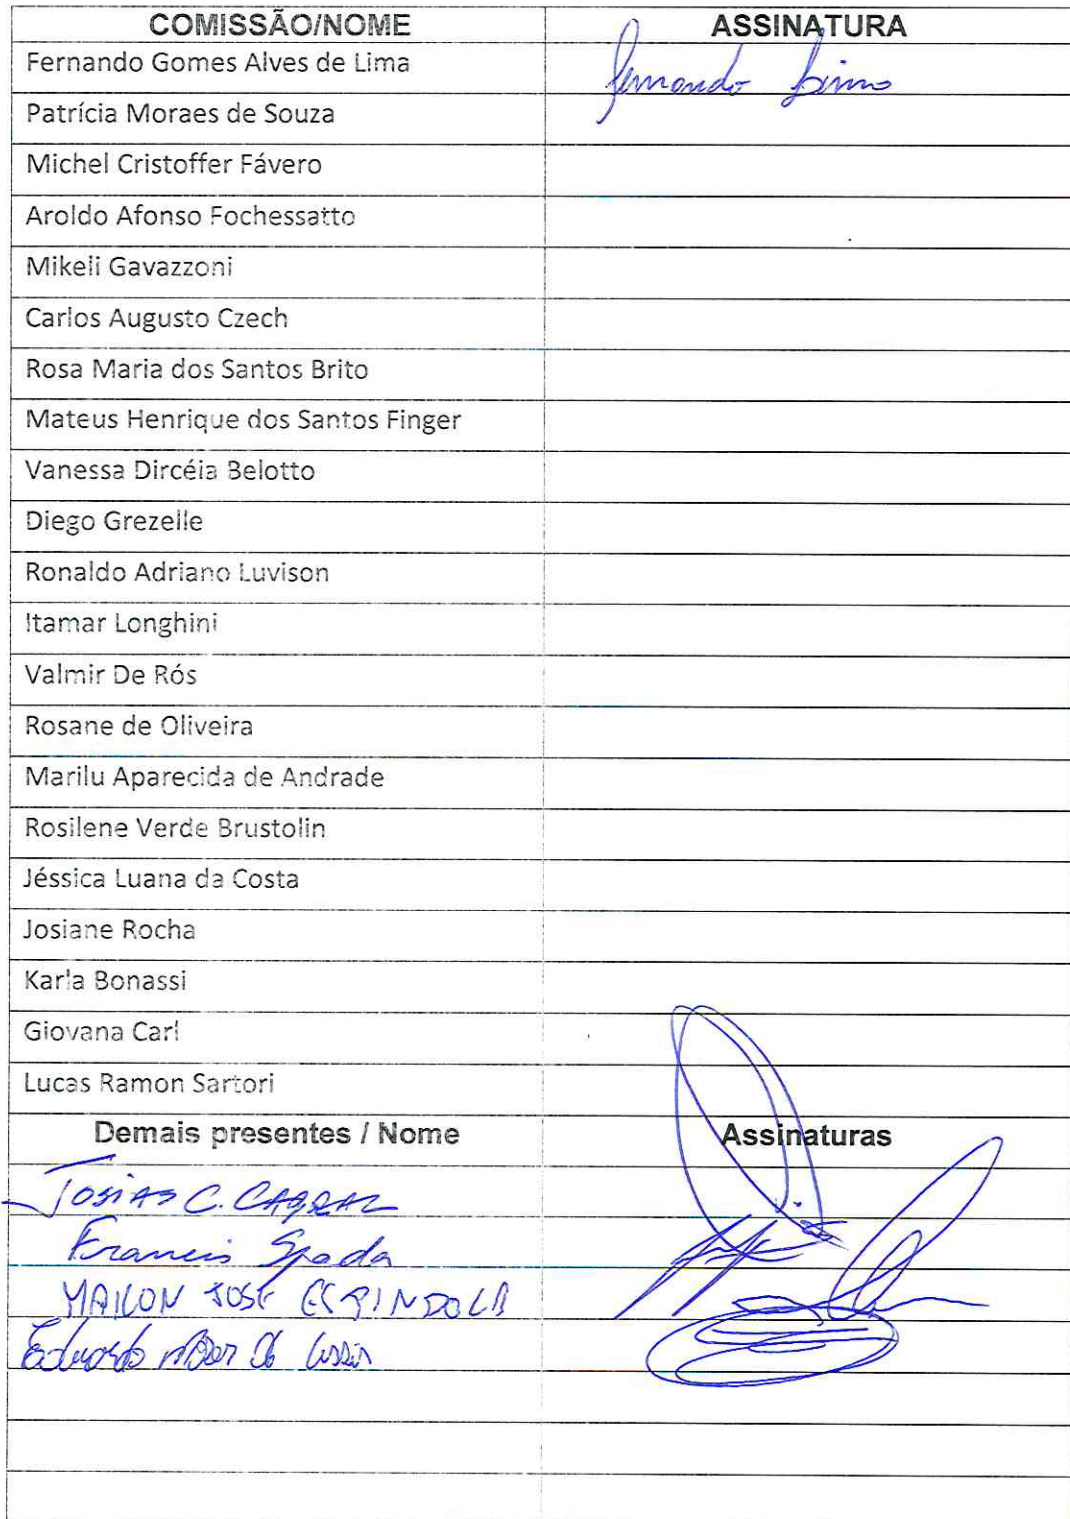 COMISSÃO/NOME ASSINATURA
Fernando Gomes Alves de Lima Fernando Lima
Patrícia Moraes de Souza
Michel Cristoffer Fávero
Aroldo Afonso Fochessatto
Mikeli Gavazzoni
Carlos Augusto Czech
Rosa Maria dos Santos Brito
Mateus Henrique dos Santos Finger
Vanessa Dircéia Belotto
Diego Grezelle
Ronaldo Adriano Luvison
Itamar Longhini
Valmir De Rós
Rosane de Oliveira
Marilu Aparecida de Andrade
Rosilene Verde Brustolin
Jéssica Luana da Costa
Josiane Rocha
Karla Bonassi
Giovana Carl
Lucas Ramon Sartori
Demais presentes / Nome Assinaturas
JOSIAS C. CABRAL
Francis Spada
MAILON JOSE ESPINDOLA
Eduardo